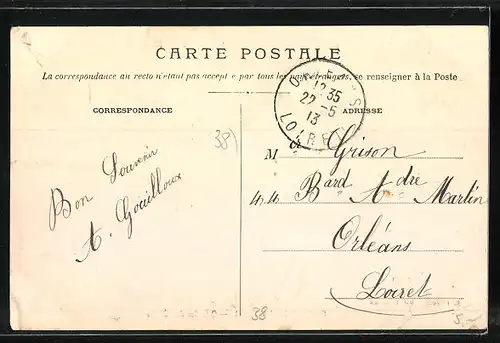 CARTE POSTALE
La correspondance au recto n'étant pas acceptée par tous les pays étrangers, se renseigner à la Poste
CORRESPONDANCE
ADRESSE
ORLÉANS
12 35
22 - 5
13
LOIRET
38
Bon Souvenir
A. Gouilloux
M Grison
44 Bard Adre Martin
Orléans
Loiret
38